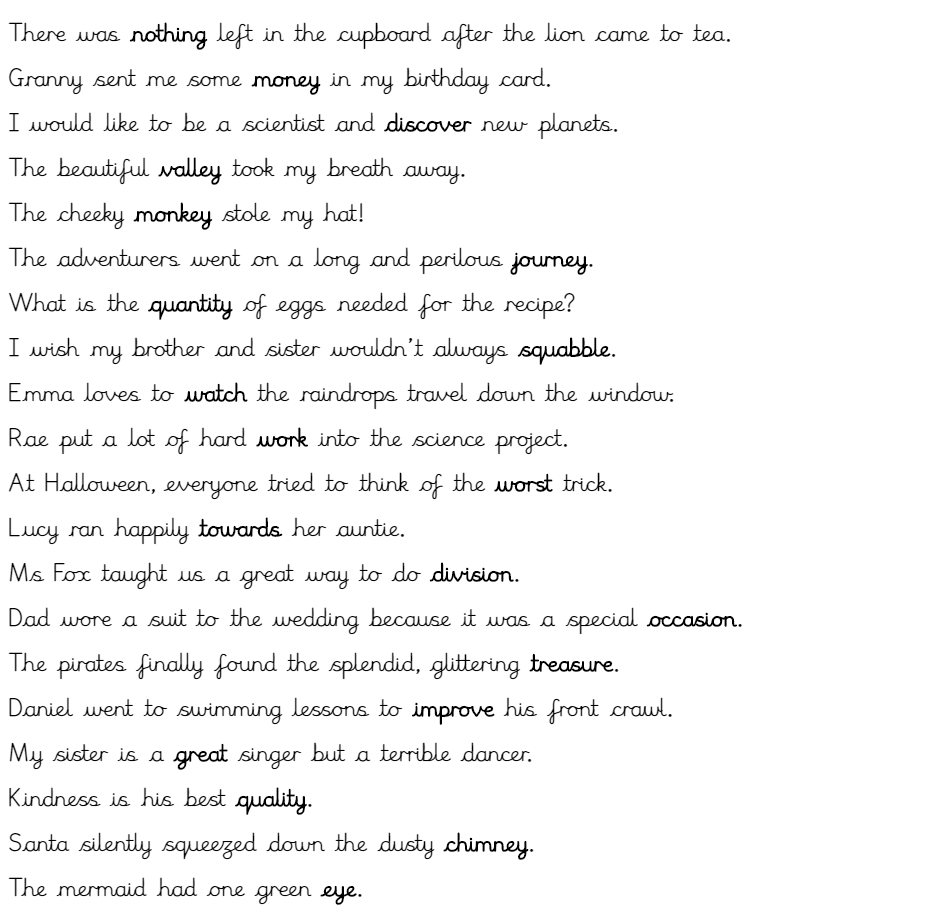 There was nothing left in the cupboard after the lion came to tea.
Granny sent me some money in my birthday card.
I would like to be a scientist and discover new planets.
The beautiful valley took my breath away.
The cheeky monkey stole my hat!
The adventurers went on a long and perilous journey.
What is the quantity of eggs needed for the recipe?
I wish my brother and sister wouldn't always squabble.
Emma loves to watch the raindrops travel down the window.
Rae put a lot of hard work into the science project.
At Halloween, everyone tried to think of the worst trick.
Lucy ran happily towards her auntie.
Ms Fox taught us a great way to do division.
Dad wore a suit to the wedding because it was a special occasion.
The pirates finally found the splendid, glittering treasure.
Daniel went to swimming lessons to improve his front crawl.
My sister is a great singer but a terrible dancer.
Kindness is his best quality.
Santa silently squeezed down the dusty chimney.
The mermaid had one green eye.